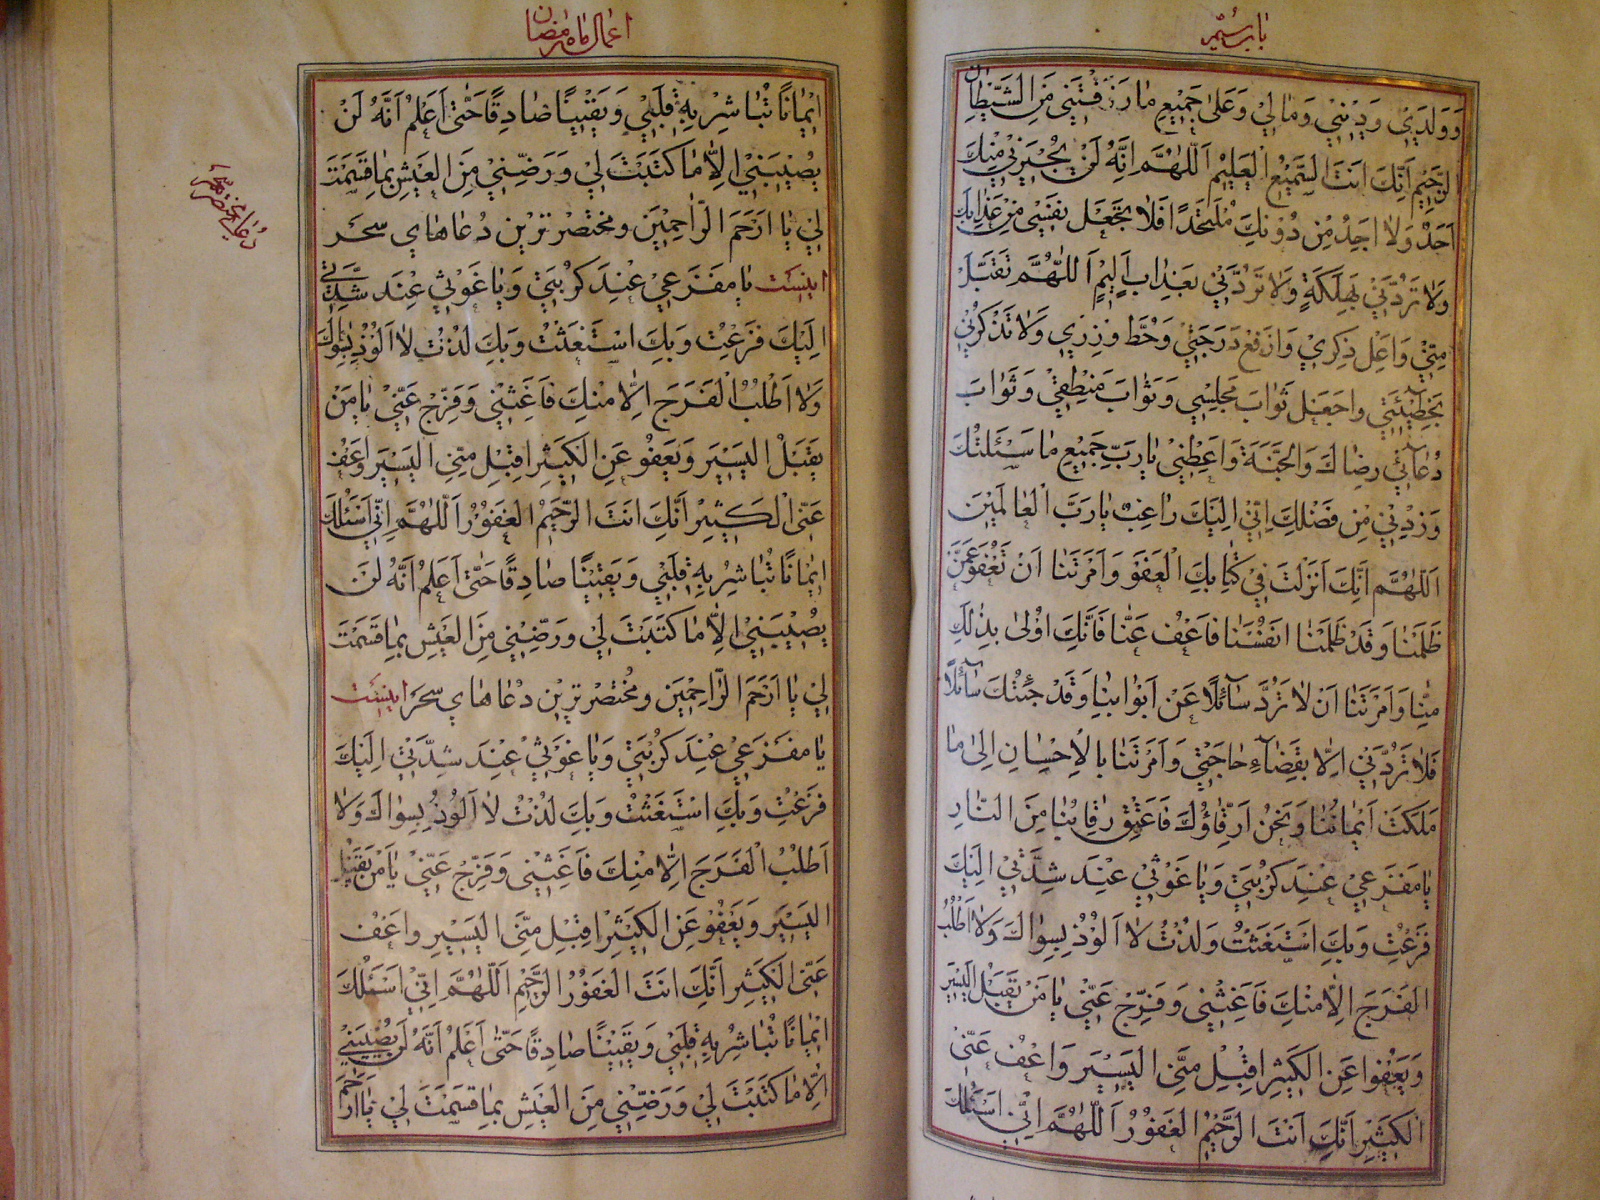 باب سیم
وَوَلَدِي وَدِيْنِي وَمٰالِي وَعَلىٰ جَمِيْعِ مٰا رَزَقْتَنِي مِنَ الشَّيْطٰانِ
الرَّجِيْمِ اَنِّكَ اَنْتَ السَّمِيْعُ الْعَلِيْمُ اَللّٰهُمَّ اِنَّهُ لَنْ يُجِيْرَنِيْ مِنْكَ
اَحَدٌ وَلٰا اَجِدُ مِنْ دُوْنِكَ مُلْتَحَدًا فَلٰا تَجْعَلْ نَفْسِي مِنْ عَذٰابِكَ
وَلٰا تَرُدَّنِيْ بِهَلَكَةٍ وَلٰا تَرُدَّنِيْ بِعَذٰابٍ اَلِيْمٍ اَللّٰهُمَّ تَقَبَّلْ
مِنِّيْ وَاَعْلِ ذِكْرِيْ وَارْفَعْ دَرَجَتِيْ وَحُطَّ وِزْرِيْ وَلٰا تَذْكُرْنِيْ
بِخَطِيْئَتِيْ وَاجْعَلْ ثَوٰابَ مَجْلِسِي وَثَوٰابَ مَنْطِقِيْ وَثَوٰابَ
دُعٰآئِيْ رِضٰاكَ وَالْجَنَّةَ وَاَعْطِنِيْ يٰا رَبِّ جَمِيْعَ مٰا سَئَلْتُكَ
وَزِدْنِيْ مِنْ فَضْلِكَ اِنِّيْ اِلَيْكَ رٰاغِبٌ يٰا رَبَّ الْعٰالَمِيْنَ
اَللّٰهُمَّ اَنِّكَ اَنْزَلْتَ فِيْ كِتٰابِكَ الْعَفْوَ وَاَمَرْتَنٰا اَنْ نَعْفُوَ عَمَّنْ
ظَلَمَنٰا وَقَدْ ظَلَمْنٰا اَنْفُسَنٰا فَاعْفُ عَنّٰا فَاَنَّكَ اَوْلىٰ بِذٰلِكَ
مِنّٰا وَاَمَرْتَنٰا اَنْ لٰا نَرُدَّ سٰآئِلًا عَنْ اَبْوٰابِنٰا وَقَدْ جِئْتُكَ سٰآئِلًا
فَلٰا تَرُدَّنِيْ اِلّٰا بِقَضٰآءِ حٰاجَتِيْ وَاَمَرْتَنٰا بِالْاِحْسٰانِ اِلىٰ مٰا
مَلَكَتْ اَيْمٰانُنٰا وَنَحْنُ اَرِقّٰاؤُكَ فَاَعْتِقْ رِقٰابَنٰا مِنَ النّٰارِ
يٰا مَفْزَعِيْ عِنْدَ كُرْبَتِيْ وَيٰا غَوْثِيْ عِنْدَ شِدَّتِيْ اِلَيْكَ
فَزِعْتُ وَبِكَ اسْتَغَثْتُ وَلُذْتُ لٰا اَلُوْذُ بِسِوٰاكَ وَلٰا اَطْلُبُ
الْفَرَجَ اِلّٰا مِنْكَ فَاَغِثْنِي وَفَرِّجْ عَنِّيْ يٰا مَنْ يَقْبَلُ الْيَسِيْرَ
وَيَعْفُوا عَنِ الْكَثِيْرِ اِقْبَلْ مِنِّى الْيَسِيْرَ وَاعْفُ عَنِّىْ
الْكَثِيْرَ اَنِّكَ اَنْتَ الرَّحِيْمُ الْغَفُوْرُ اَللّٰهُمَّ اِنِّيْ اَسْئَلُكَ
اعمال ماه رمضان
اِيْمٰانًا تُبٰاشِرُ بِهِ قَلْبِيْ وَيَقِيْنًا صٰادِقًا حَتّٰى اَعْلَمَ اَنَّهُ لَنْ
يُصِيْبَنِيْ اِلّٰا مٰا كَتَبْتَ لِيْ وَرَضِّنِيْ مِنَ الْعَيْشِ بِمٰا قَسَمْتَ
لِيْ يٰا اَرْحَمَ الرّٰاحِمِيْنَ ومختصر ترین دعاهای سحر
اینست يٰا مَفْزَعِيْ عِنْدَ كُرْبَتِيْ وَيٰا غَوْثِيْ عِنْدَ شِدَّتِيْ
اِلَيْكَ فَزِعْتُ وَبِكَ اسْتَغَثْتُ وَبِكَ لُذْتُ لٰا اَلُوْذُ بِسِوٰاكَ
وَلٰا اَطْلُبُ الْفَرَجَ اِلّٰا مِنْكَ فَاَغِثْنِيْ وَفَرِّجْ عَنِّيْ يٰا مَنْ
يَقْبَلُ الْيَسِيْرَ وَيَعْفُوْ عَنِ الْكَثِيْرِ اِقْبَلْ مِنِّي الْيَسِيْرَ وَاعْفُ
عَنِّى الْكَثِيْرَ اَنَّكَ اَنْتَ الرَّحِيْمُ الْغَفُوْرُ اَللّٰهُمَّ اِنِّيْ اَسْئَلُكَ
اِيْمٰانًا تُبٰاشِرُ بِهِ قَلْبِيْ وَيَقِيْنًا صٰادِقًا حَتّٰى اَعْلَمَ اَنَّهُ لَنْ
يُصِيْبَنِيْ اِلّٰا مٰا كَتَبْتَ لِيْ وَرَضِّنِيْ مِنَ الْعَيْشِ بِمٰا قَسَمْتَ
لِيْ يٰا اَرْحَمَ الرّٰاحِمِيْنَ ومختصر ترین دعاهای سحر اینست
يٰا مَفْزَعِيْ عِنْدَ كُرْبَتِيْ وَيٰا غَوْثِيْ عِنْدَ شِدَّتِيْ اِلَيْكَ
فَزِعْتُ وَبِكَ اسْتَغَثْتُ وَبِكَ لُذْتُ لٰا اَلُوْذُ بِسِوٰاكَ وَلٰا
اَطْلُبُ الْفَرَجَ اِلّٰا مِنْكَ فَاَغِثْنِى وَفَرِّجْ عَنِّيْ يٰا مَنْ يَقْبَلُ
الْيَسِيْرَ وَيَعْفُوْ عَنِ الْكَثِيْرِ اِقْبَلْ مِنِّى الْيَسِيْرَ وَاعْفُ
عَنِّى الْكَثِيْرَ اَنَّكَ اَنْتَ الْغَفُوْرُ الرَّحِيْمُ اَللّٰهُمَّ اِنِّيْ اَسْئَلُكَ
اِيْمٰانًا تُبٰاشِرُ بِهِ قَلْبِيْ وَيَقِيْنًا صٰادِقًا حَتّٰى اَعْلَمَ اَنَّهُ لَنْ يُصِيْبَنِيْ
اِلّٰا مٰا كَتَبْتَ لِيْ وَرَضِّنِيْ مِنَ الْعَيْشِ بِمٰا قَسَمْتَ لِيْ يٰا اَرْحَمَ
دعای مختصر سحر